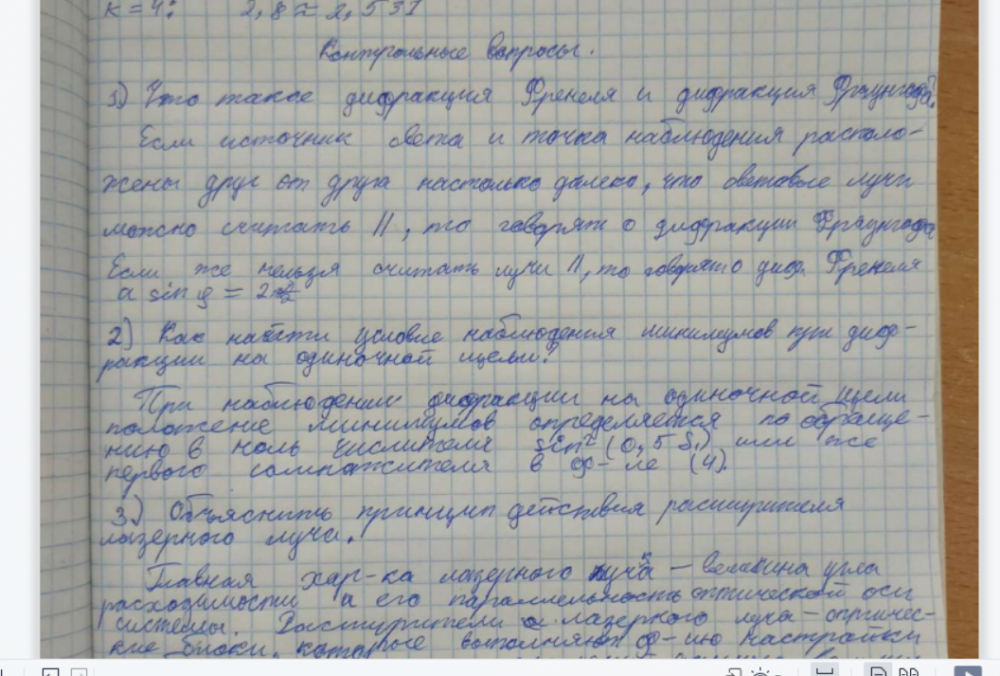 k = 4: 2,8 ≈ 2,531
Контрольные вопросы.
1) Что такое дифракция Френеля и дифракция Фраунгофа?
Если источник света и точка наблюдения располо-
жены друг от друга настолько далеко, что световые лучи
можно считать ||, то говорят о дифракции Фраунгофа
Если же нельзя считать лучи ||, то говорят о диф. Френеля
a sin φ = 2
2) Как найти условие наблюдения минимумов при диф-
ракции на одиночной щели?
При наблюдении дифракции на одиночной щели
положение минимумов определяется по обраще-
нию в ноль числителя sin² (0,5 δ₁) или же
первого сомножителя в ф-ле (4).
3) Объяснить принцип действия расширителя
лазерного луча.
Главная хар-ка лазерного луча – величина угла
расходимости а его параллельность оптической оси
системы. Расширители лазерного луча – оптичес-
кие блоки, которые выполняют ф-ию настройки